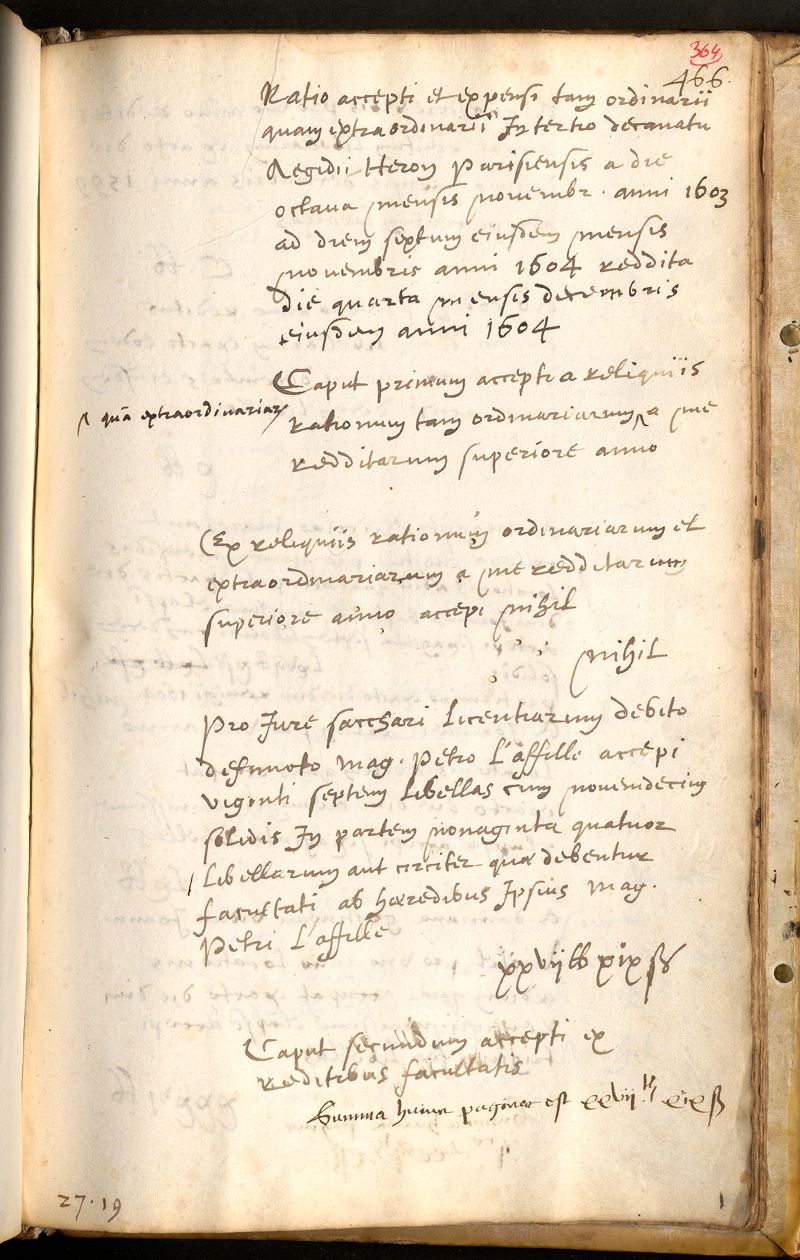 364
466.
Ratio accepti et expensi tam ordinarii
quam extraordinarii In tertio decanatu
Aegidii Heron Parisiensis a die
octava mensis novembr. anni 1603
ad diem septimum eiusdem mensis
novembris anni 1604 reddita
die quarta mensis decembris
eiusdem anni 1604
Caput primum accepti a reliquiis
^ quā extraordinariar
rationum tam ordinariarum ^ a me
redditarum superiore anno
Ex reliquiis rationum ordinariarum et
extraordinariarum a me redditarum
superiore anno accepi nihil
nihil
Pro Jure sacchari Licentiarum debito
defuncto mag. Petro L'affille accepi
viginti septem Libellas cum novemdecim
solidis In partem nonaginta quatuor
Libellarum aut circiter quae debentur
facultati ab haeredibus Ipsius mag.
Petri L'affille
xxvii lb xix ß
Caput secundum accepti ex
reditibus facultatis
Summa huius paginae est xxvii lb xix ß
27.19
1